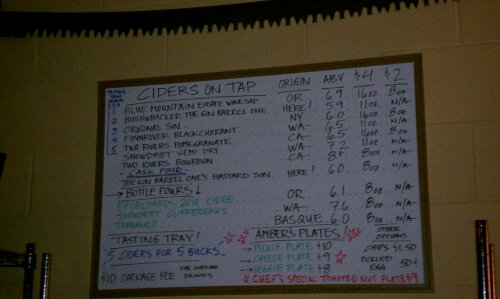 TASTING TRAY CIDERS ON TAP ORIGIN ABV $4 $2
1 BLUE MOUNTAIN ESTATE WINESAP OR 6.9 16oz 8oz
2 BUSHWHACKER THE GIN BARREL ONE HERE! 5.9 11oz N/A
3 ORIGINAL SIN NY 6.0 16oz 8oz
4 FINNRIVER BLACKCURRANT WA 6.5 11oz N/A
5 TWO RIVERS POMEGRANATE CA 6.5 16oz 8oz
SNOWDRIFT SEMI-DRY WA 7.2 11oz N/A
TWO RIVERS BOURBON CA 8+ 8oz N/A
CASK POUR
THE GIN BARREL ONE'S BASTARD SON HERE! 6.0 8oz N/A
BOTTLE POURS
EZ ORCHARDS 2010 CIDRE OR 6.1 8oz N/A
SNOWDRIFT CLIFFBREAKS WA 7.6 8oz N/A
TRABANCO BASQUE 6.0 8oz N/A
TASTING TRAY!
5 CIDERS FOR 5 BUCKS
$10 CORKAGE FEE FOR OUTSIDE DRINKS
AMBER'S PLATES!
PICKLE PLATE $10
CHEESE PLATE $9
VEGGIE PLATE $8
CHEF'S SPECIAL: TOASTED NUT PLATE $9
OTHER OPTIONS
CHIPS $1.50
PICKLED EGG 50¢